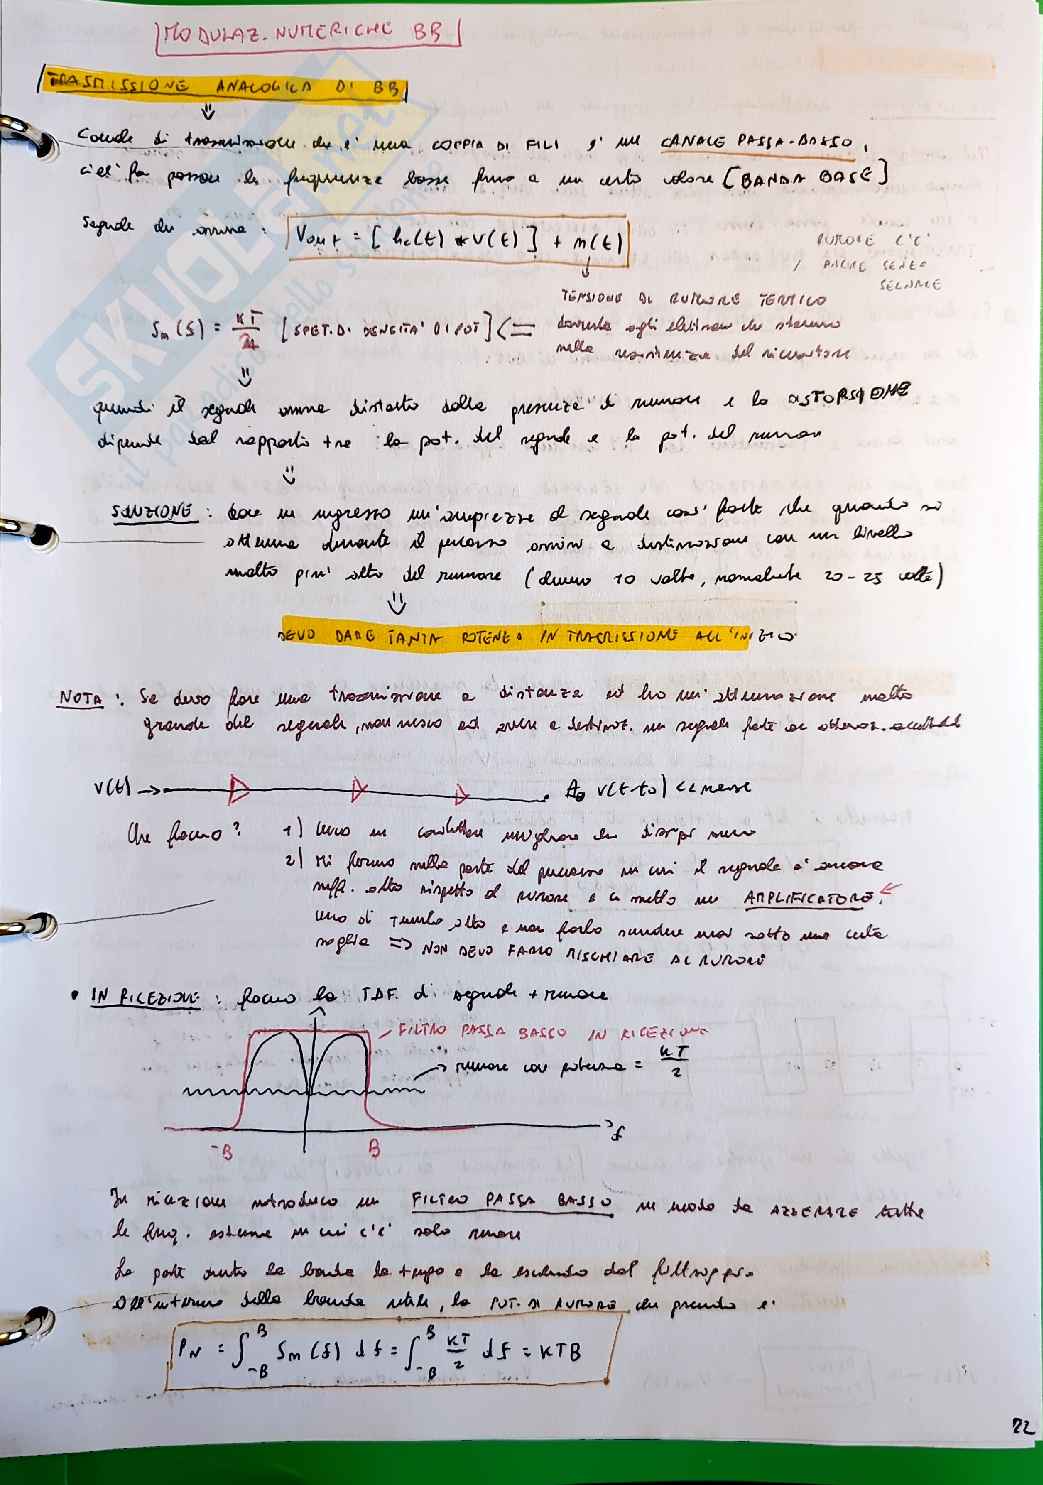 MODULAZ. NUMERICHE BB
TRASMISSIONE ANALOGICA DI BB
Canale di trasmissione che è una COPPIA DI FILI è un CANALE PASSA-BASSO,
cioè fa passare le frequenze basse fino a un certo valore [BANDA BASE]
Segnale che arriva : Vout = [ hc(t) * v(t) ] + n(t)
RUMORE C'È
ANCHE SENZA
SEGNALE
Sn(f) = KT/2 [SPET. DI DENSITA' DI POT] <=
TENSIONE DI RUMORE TERMICO
dovuta agli elettroni che stanno
nella resistenza del ricevitore
quindi il segnale arriva distorto dalla presenza di rumore e la DISTORSIONE
dipende dal rapporto tra la pot. del segnale e la pot. del rumore
SOLUZIONE : dare in ingresso un'ampiezza al segnale così forte che quando si
attenua durante il percorso arriva a destinazione con un livello
molto più alto del rumore (almeno 10 volte, normalmente 20-25 volte)
DEVO DARE TANTA POTENZA IN TRASMISSIONE ALL'INIZIO
NOTA : Se devo fare una trasmissione a distanza ed ho un'attenuazione molto
grande del segnale, non riesco ad avere a destinaz. un segnale fatto da attenuaz. accettabili
v(t) → A₀ v(t-t₀) <<
Che faccio? 1) Cerco un conduttore migliore che dissipi meno
2) Mi fermo nella parte del percorso in cui il segnale è ancora
suff. alto rispetto al rumore e ci metto un AMPLIFICATORE.
Uno di tenerlo alto e non farlo scendere mai sotto una certa
soglia => NON DEVO FARLO MISCHIARE AL RUMORE
• IN RICEZIONE : faccio la TDF. di segnale + rumore
FILTRO PASSA BASSO IN RICEZIONE
rumore con potenza = KT/2
f
-B
B
In ricezione introduco un FILTRO PASSA BASSO in modo da AZZERARE tutte
le freq. esterne in cui c'è solo rumore
La parte dentro la banda la tengo e la escludo dal
All'interno della banda utile, la POT. DI RUMORE che prendo è:
PN = ∫_{-B}^{B} Sn(f) df = ∫_{-B}^{B} KT/2 df = KTB
22
SKUOLA.net
il paradiso dello studente